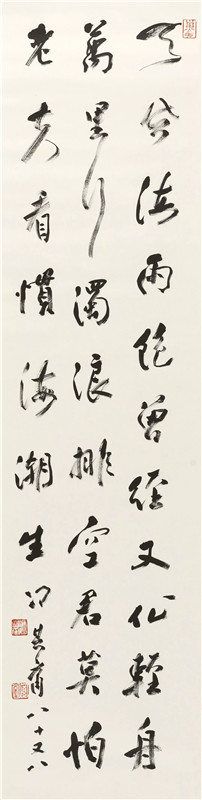 天風海雨飽曾經又作輕舟
萬里行濁浪排空君莫怕
老夫看慣海潮生 冯其庸八十又八